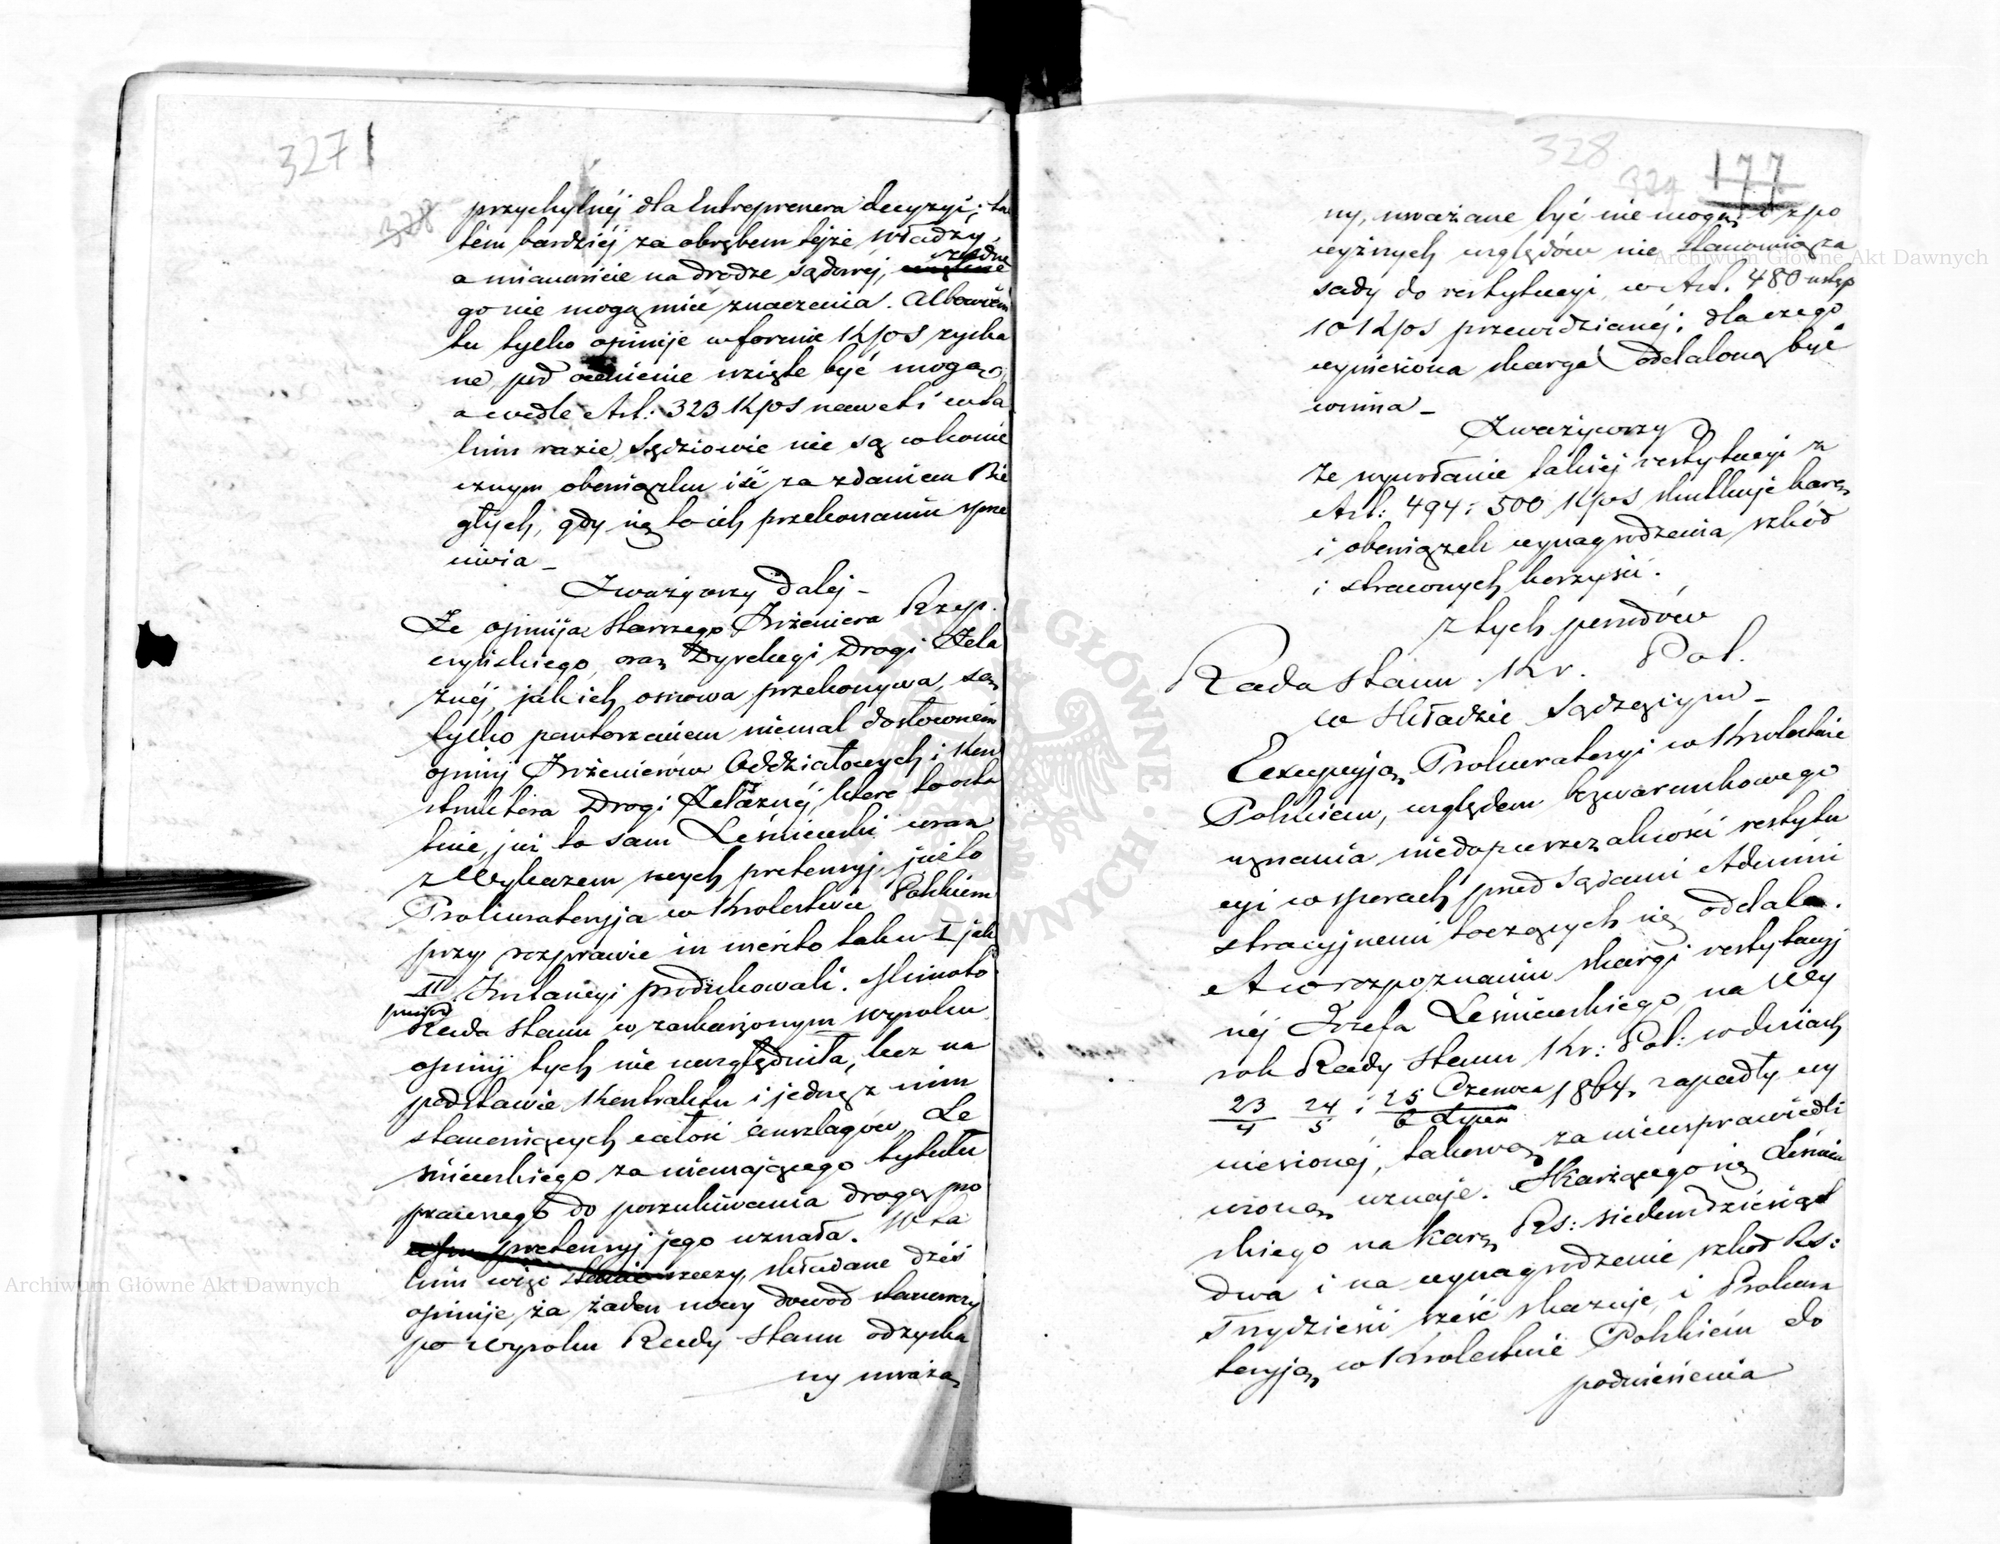 3271
328
przychylnéj dla Entreprenera decyzyi; ta
tém bardziéj za obrębem tejże Władzy
a mianowicie na drodze sądowéj, żadne
go nie mogą mieć znaczenia. Albowiem
tu tylko opinije w formie KPOS zyska
ne, pod ocenienie wzięte być mogą,
a wedle Art: 323 KPOS nawet i w ta
kim razie, Sędziowie nie są w koniec
cznym obowiązku iść za zdaniem Bie
głych, gdy się to ich przekonaniu sprze
ciwia –
Zważywszy Dalej –
Że opinija Starszego Inżeniera Rzep.
czyńskiego, oraz Dyrekcyi Drogi Żela
znéj, jak ich osnowa przekonywa, są
tylko powtórzeniem niemal dosłowném
opinij Inżenierów Oddziałowych i Kon
struktora Drogi Żelaznéj, które to osta
tnie, już to sam Leśniewski wraz
z Wykazem swych pretensyj, już to
Prokuratoryja w Królestwie Polskiem
przy rozprawie in merito tak w I jak
II Instancyi produkowali. Mimo to
Rada Stanu w zaskarżonym wyroku
opinij tych nie uwzględniła, lecz na
podstawie Kontraktu i jedną z nim
stanowiących całość anszlagów, Le
śniewskiego za niemającego tytułu
prawnego do poszukiwania drogą pro
pretensyj jego uznała. W ta
kim więc rzeczy, składane dziś
opinije, za żaden nowy dowód stanowczy
po Wyroku Rady Stanu odzyska
ny uważa
328
324
177
ny, uważane być nie mogą i z po
wyższych względów nie stanowią za
sady do restytucyi, w Art. 480 ustęp
10 KPOS przewidzianéj; dla czego
wyniesiona skarga oddaloną być
winna –
Zważywszy
Że wywołanie takiéj restytucyi z
Art: 494 i 500 KPOS skutkuje karę
i obowiązek wynagrodzenia szkód
i straconych korzyści.
z tych powodów
Rada Stanu Kr. Pol.
w Składzie Sądzącym –
Excepcyją Prokuratoryi w Królestwie
Polskiem, względem bezwarunkowego
uznania niedopuszczalności restytu
cyi w sporach przed Sądami Admini
stracyjnemi toczących się oddala.
A w rozpoznaniu skargi restytucyj
néj Józefa Leśniewskiego, na Wy
rok Rady Stanu Kr: Pol: w dniach
23/4 24/5 i 25 Czerwca/6 Lipca 1864 zapadły wy
niesionéj, takową za nieusprawiedli
wioną uznaje. Skarżącego się Leśniew
skiego na karę Rs: siedemdziesiąt
dwa i na wynagrodzenie szkód Rs:
Trzydzieści sześć skazuje, i Prokura
toryją w Królestwie Polskiém do
podniesienia
Archiwum Główne Akt Dawnych
Archiwum Główne Akt Dawnych